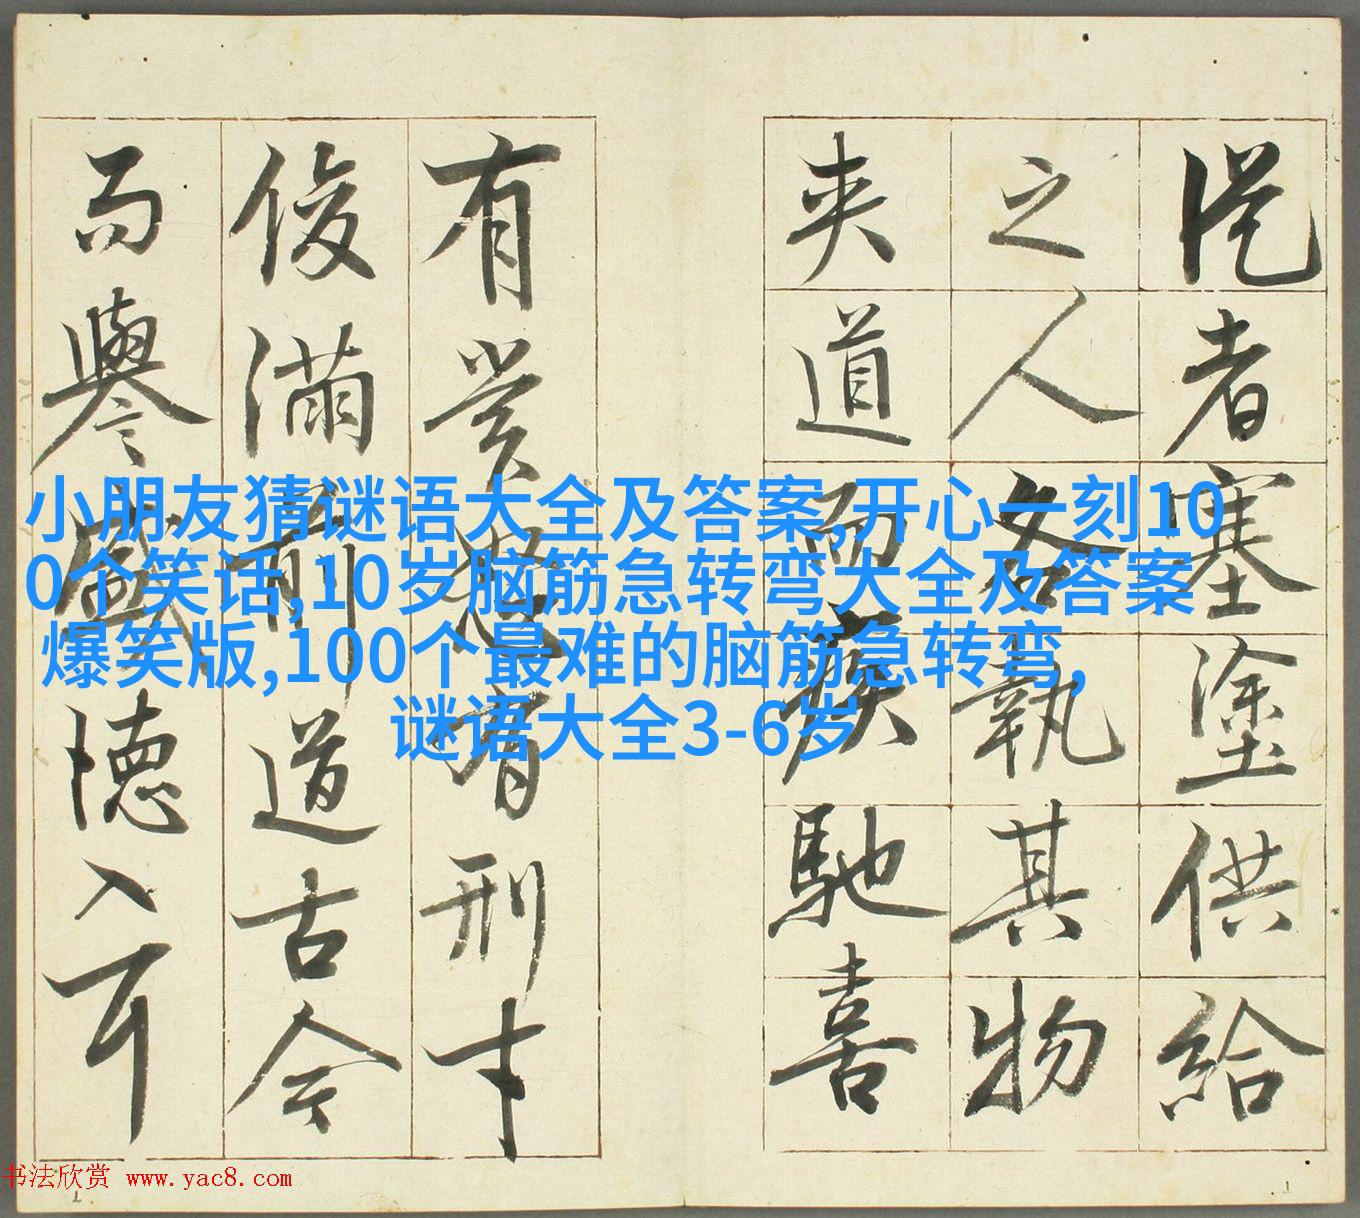 從者塞塗供給
之人各執其物
夾道而疾馳喜
有賞怒有刑才
俊滿前道古今
而譽盛德入耳
小朋友猜谜语大全及答案,开心一刻10
0个笑话,10岁脑筋急转弯大全及答案
爆笑版,100个最难的脑筋急转弯,
谜语大全3-6岁
书法欣赏 www.yac8.com